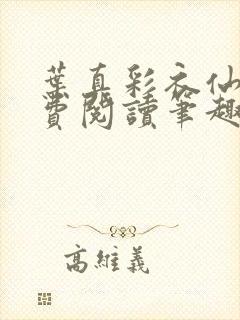 葉真彩衣仙
費閱讀筆趣
高維義